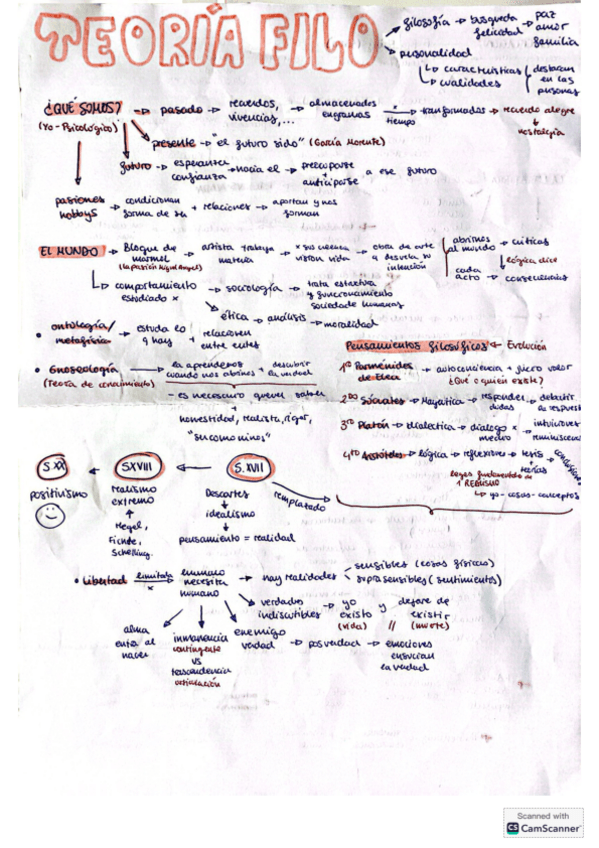 TEORÍA FILO
filosofía → búsqueda felicidad → paz amor familia
personalidad
características
cualidades
destacan en las personas
¿QUÉ SOMOS? → pasado → recuerdos, vivencias,... → almacenados engramas → x tiempo transformados → recuerdo alegre
(Yo-Psicológico)
nostalgia
presente → "el futuro sido" (García Morente)
futuro → esperanza confianza → hacia el → preocuparse + anticiparse a ese futuro
pasiones hobbys → condicionan forma de ser + relaciones → aportan y nos forman
EL MUNDO → Bloque de marmol → artista trabaja materia → x su vision vida → obra de arte a desvela su intención
(la pasión Miguel Angel)
abrirnos al mundo → críticas
lógica dice
cada acto → consecuencias
comportamiento estudiado x → sociología → trata estructura y funcionamiento sociedades humanas
ética → análisis → moralidad
• ontología/ metafísica → estudia lo q hay + relaciones entre entes
• Gnoseología → la aprendemos cuando nos abrimos + descubrir la verdad
(Teoría de conocimiento)
- es necesario querer saber
+
honestidad, realista, rigor,
Pensamientos filosóficos ← Evolución
1º Parménides de Elea → autoconciencia + juicio valor
¿Qué o quien existe?
2do Sócrates → Mayéutica → responder dudas
3ro Platón → dialectica → dialogo x medio
4rto Aristóteles → lógica → reflexiones → tesis → teorías → conclusiones
1 REALISMO
yo-cosas-conceptos
S.XX ← S.XVIII ← S.XVII
positivismo
realismo extremo
Hegel, Fichte, Schelling.
Descartes
idealismo
pensamiento = realidad
remplazado
• Libertad limitada x → humano necesita humano → hay realidades
sensibles (cosas físicas)
suprasensibles (sentimientos)
verdades indiscutibles → yo existo y dejare de existir
(vida) // (muerte)
alma entra al nacer
inmanencia contingente vs trascendencia
enemigo verdad → posverdad → emociones ensucian la verdad
Scanned with
CS CamScanner